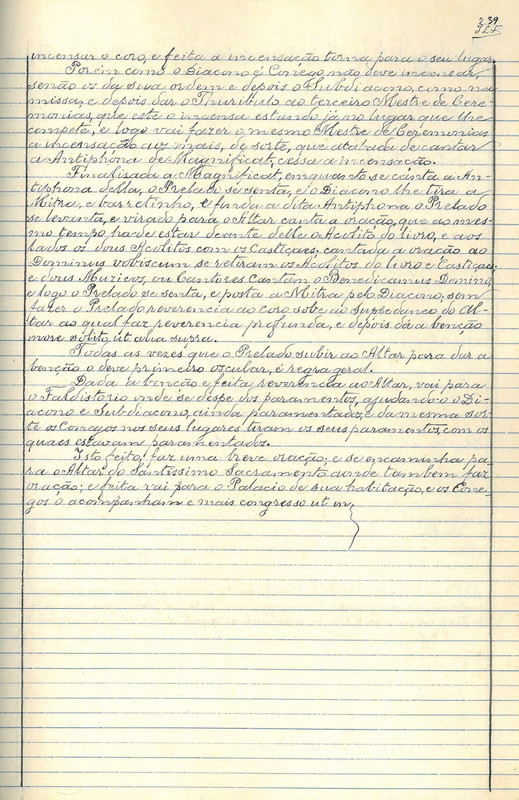 239
incensar o coro, e feita a incensação torna para o seu lugar.
Porém como o Diacono é Conego, não deve incensar,
senão os da sua ordem e depois o Subdiacono, como na
missa, e depois dar o Thuribulo ao terceiro Mestre de Cere-
monias, que este o incensa estando já no lugar que lhe
compete, e logo vai fazer o mesmo Mestre de Ceremonias
a incensação aos mais, de sorte, que acabada de cantar
a Antiphona de Magnificat, cessa a incensação.
Finalisada a Magnificat, emquanto se canta a An-
tiphona della, o Prelado se senta, e o Diacono lhe tira a
Mitra, e barretinho, e finda a dita Antiphona o Prelado
se levanta, e virado para o Altar canta a oração, que ao mes-
mo tempo hade estar deante delle o Acolito do livro, e aos
lados os dous Acolitos com os Castiçaes: cantada a oração ao
Dominus vobiscum se retiram os Acolitos do livro e Castiçaes
e dous Muzicos, ou Cantores cantam o Benedicamus Domino,
e logo o Prelado se senta, e posta a Mitra pelo Diacono, sem
fazer o Prelado reverencia ao coro sobe ao suppedaneo do Al-
tar ao qual faz reverencia profunda, e depois dá a benção
more solito, ut alva supra.
Todas as vezes que o Prelado subir ao Altar para dar a
benção o deve primeiro oscular, é regra geral.
Dada a benção e feita reverencia ao Altar, vai para
o Faldistorio onde se despe dos paramentos, ajudando-o o Di-
acono e Subdiacono, ainda paramentados, e da mesma sor-
te os Conegos nos seus lugares tiram os seus paramentos, com os
quaes estavam paramentados.
Isto feito, faz uma breve oração; e se encaminha pa-
ra o Altar do Santissimo Sacramento aonde tambem faz
oração; e feita vai para o Palacio de sua habitação, e os Cone-
gos o acompanham e mais congresso ut in,